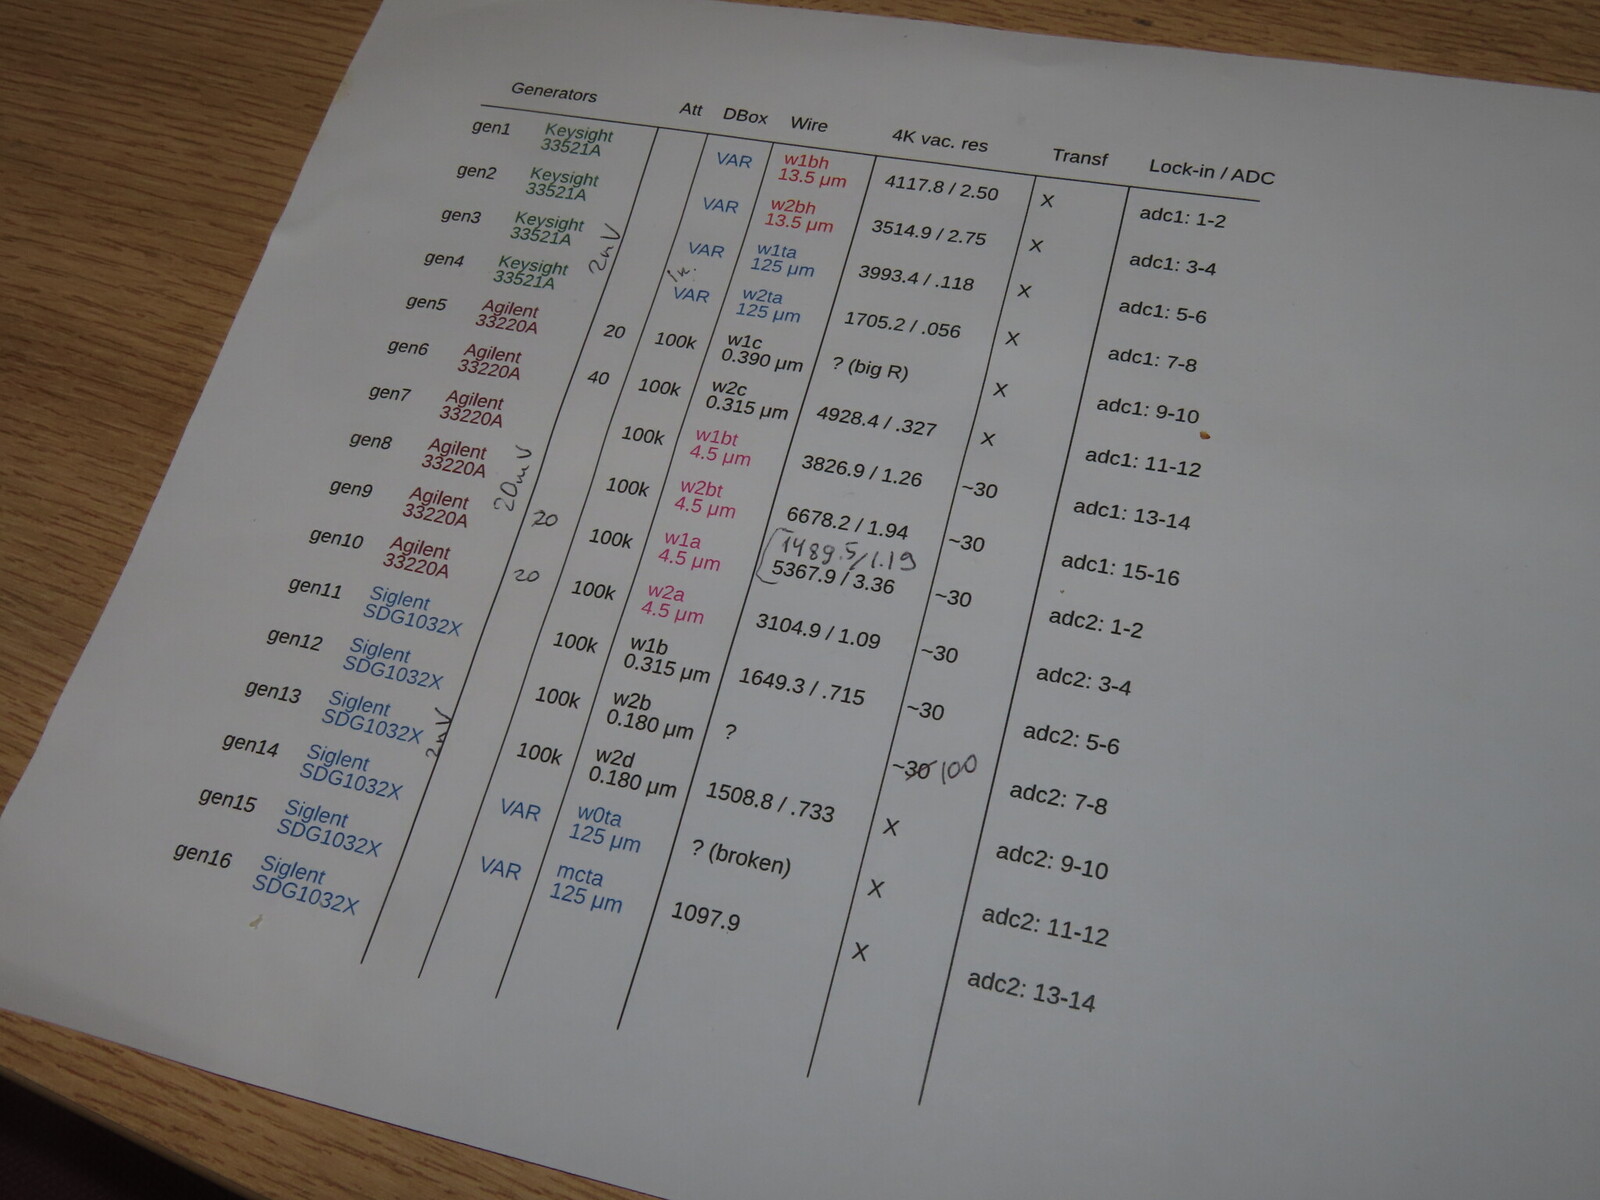 Generators Att DBox Wire 4K vac. res Transf Lock-in / ADC
gen1 Keysight VAR w1bh 4117.8 / 2.50 x adc1: 1-2
33521A 13.5 µm
gen2 Keysight VAR w2bh 3514.9 / 2.75 x adc1: 3-4
33521A 13.5 µm
gen3 Keysight VAR w1ta 3993.4 / .118 x adc1: 5-6
33521A 125 µm
2mV
gen4 Keysight VAR w2ta 1705.2 / .056 x adc1: 7-8
33521A 125 µm
gen5 Agilent 20 100k w1c ? (big R) x adc1: 9-10
33220A 0.390 µm
gen6 Agilent 40 100k w2c 4928.4 / .327 x adc1: 11-12
33220A 0.315 µm
gen7 Agilent 100k w1bt 3826.9 / 1.26 ~30 adc1: 13-14
33220A 4.5 µm
gen8 Agilent 100k w2bt 6678.2 / 1.94 ~30 adc1: 15-16
33220A 4.5 µm
20mV
1489.5/1.19
gen9 Agilent 20 100k w1a 5367.9 / 3.36 ~30 adc2: 1-2
33220A 4.5 µm
gen10 Agilent 20 100k w2a 3104.9 / 1.09 ~30 adc2: 3-4
33220A 4.5 µm
gen11 Siglent 100k w1b 1649.3 / .715 ~30 adc2: 5-6
SDG1032X 0.315 µm
gen12 Siglent 100k w2b ? ~30 100 adc2: 7-8
SDG1032X 0.180 µm
gen13 Siglent 100k w2d 1508.8 / .733 x adc2: 9-10
SDG1032X 0.180 µm
2mV
gen14 Siglent VAR w0ta ? (broken) x adc2: 11-12
SDG1032X 125 µm
gen15 Siglent VAR mcta 1097.9 x adc2: 13-14
SDG1032X 125 µm
gen16 Siglent
SDG1032X